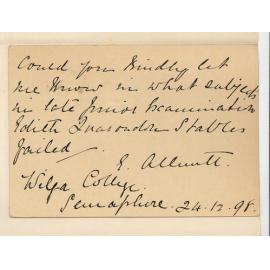 Could you kindly let
me know in what subjects
in late Junior Examination
Edith Stables
failed
E. Allnutt.
Wilga College.
Semaphore. 24.12.98.